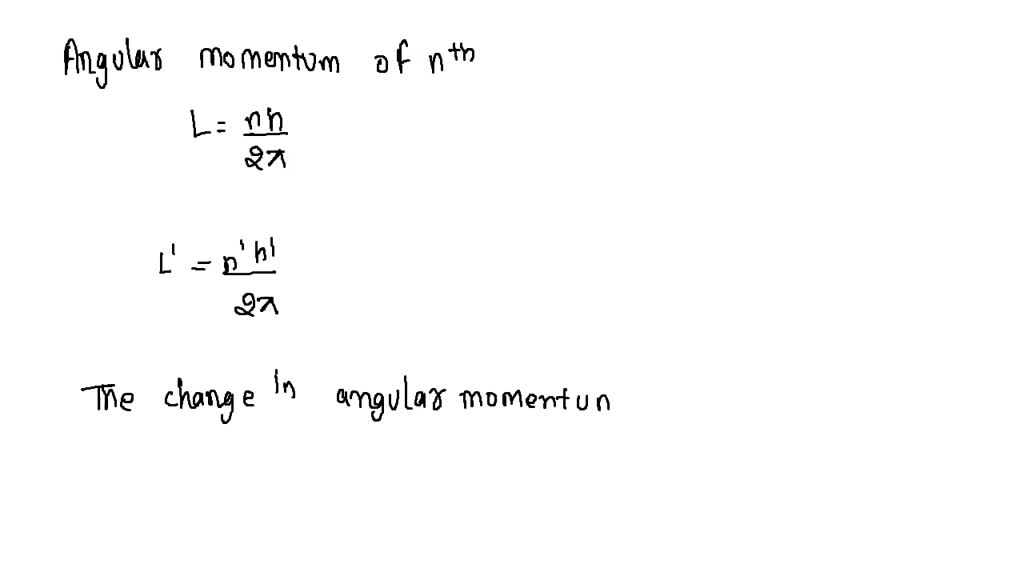 Angular momentum of nth
L = nh
2π
L' = n'h'
2π
The change in angular momentun